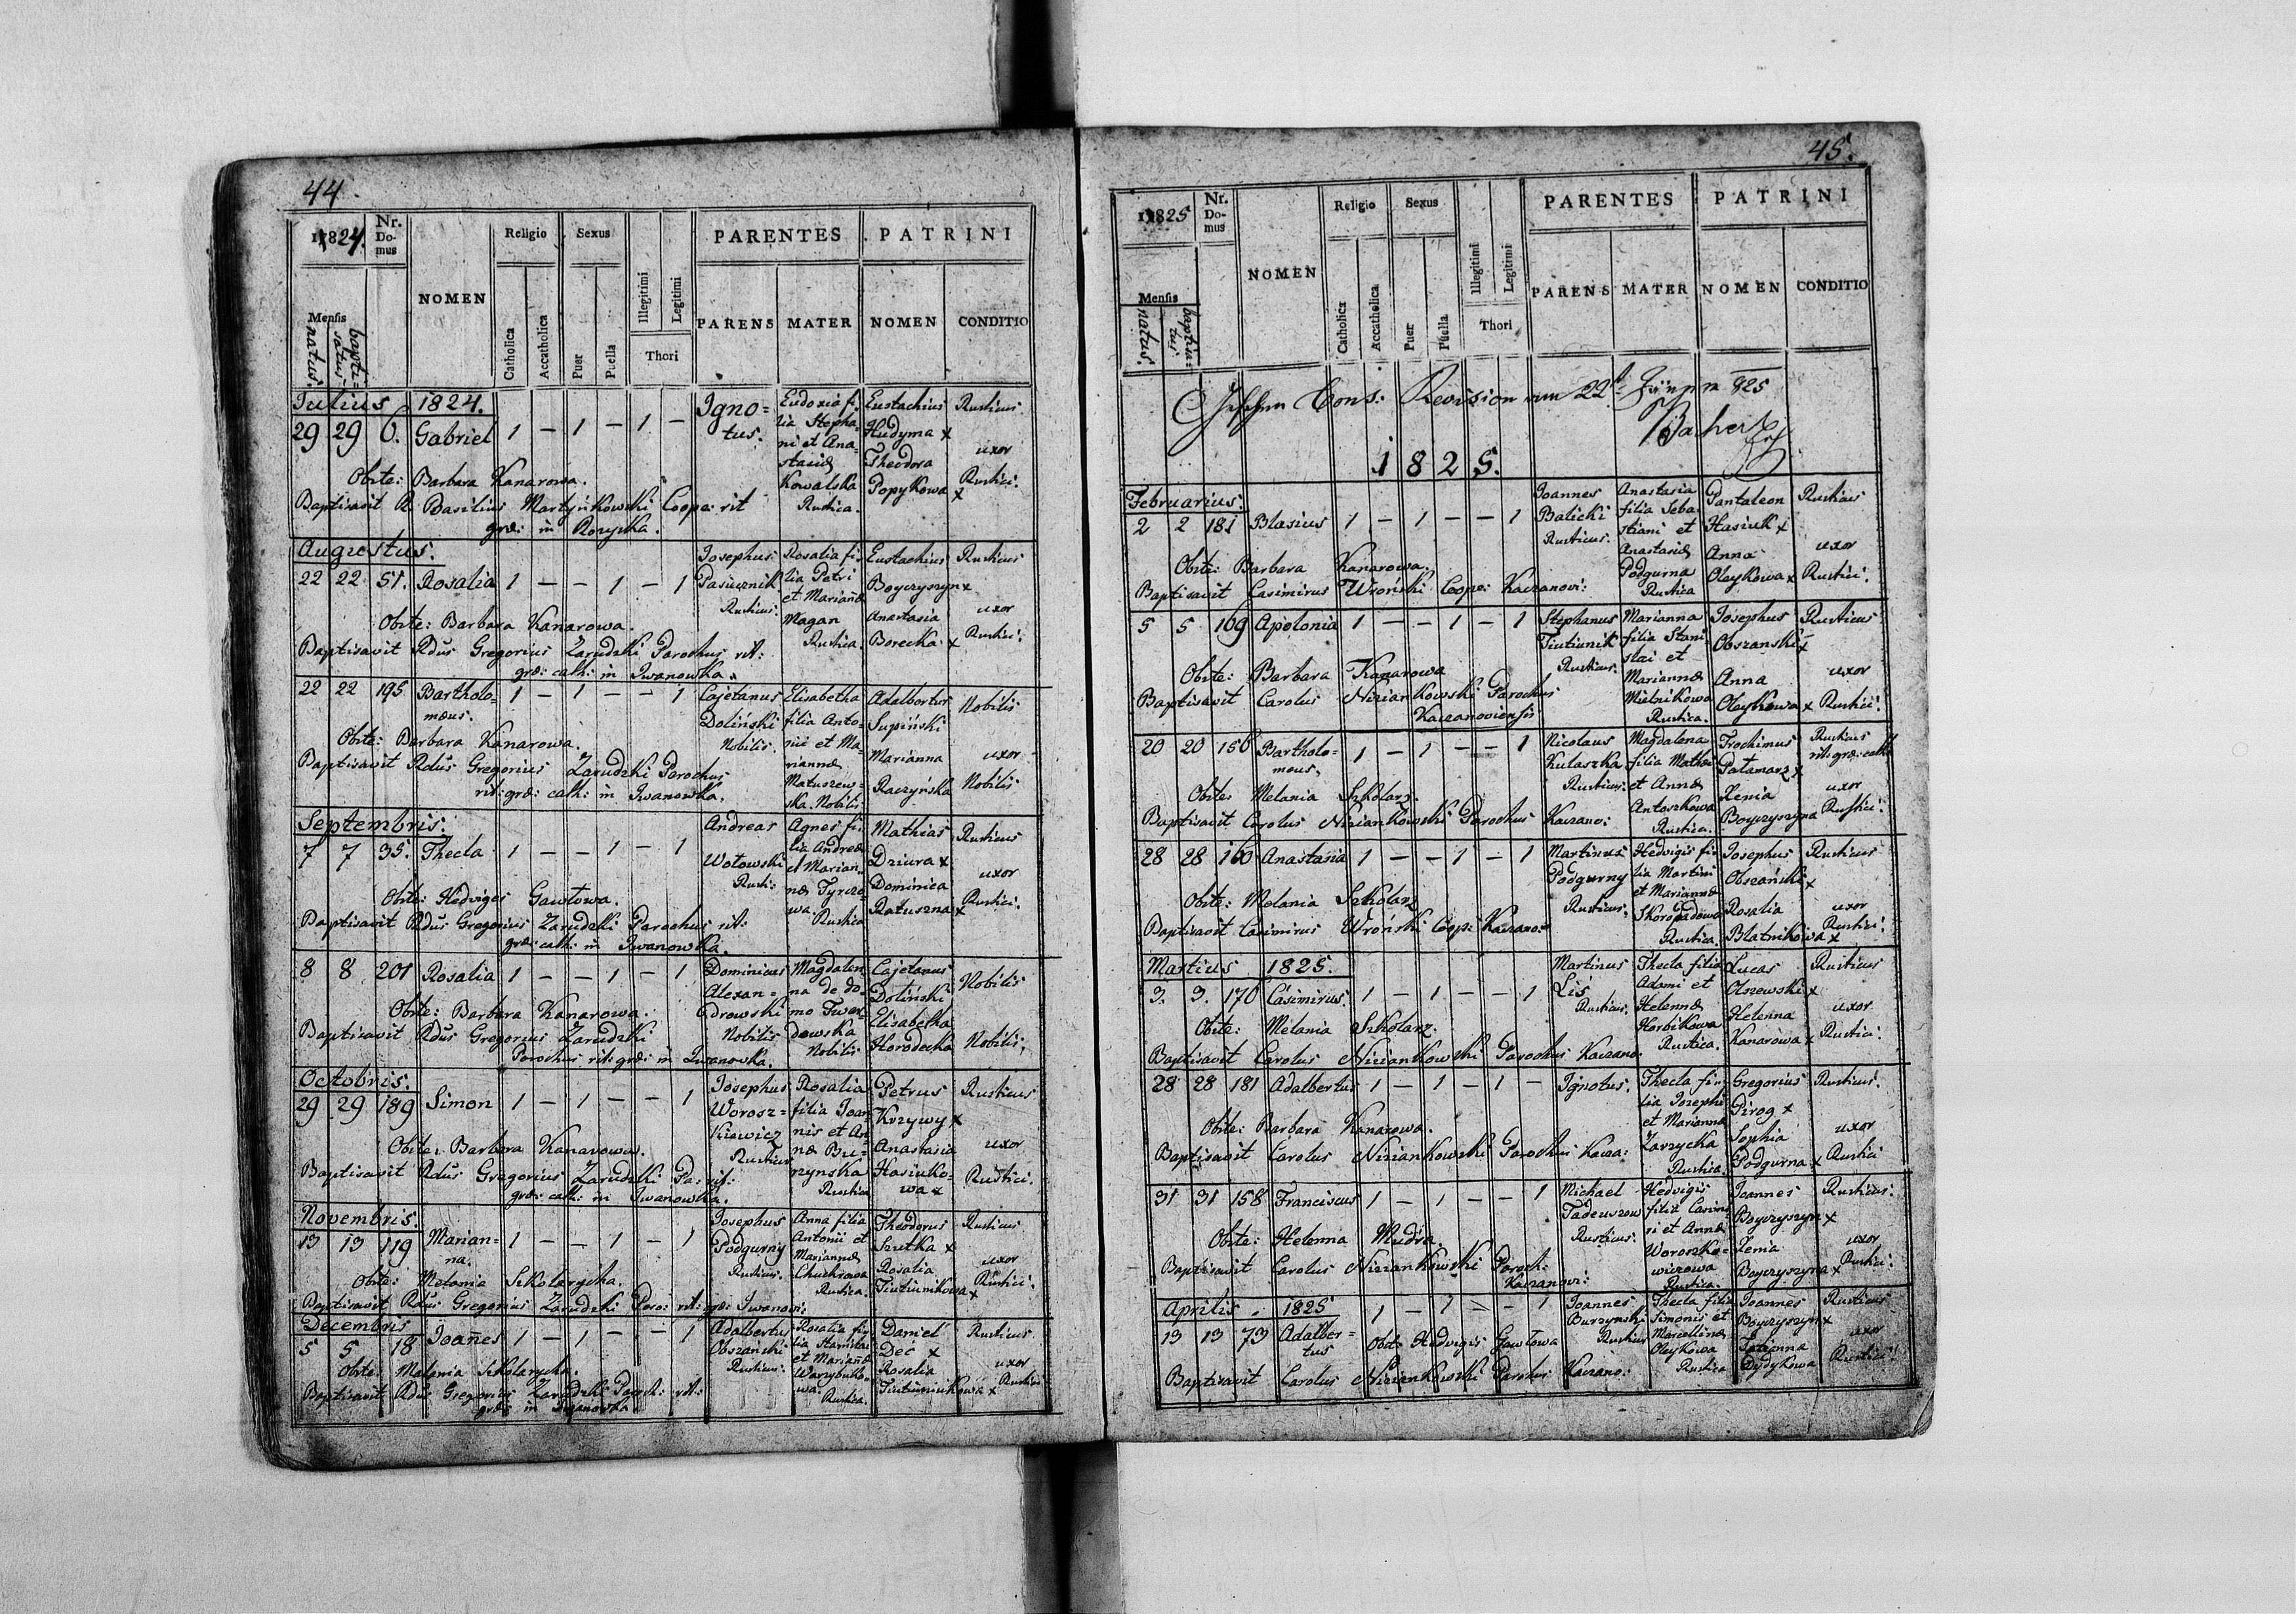 44.
1824.
Nr. Domus
NOMEN
Religio
Sexus
PARENTES
PATRINI
Mensis
natus.
baptisatus.
Catholica
Accatholica
Puer
Puella
Illegitimi
Legitimi
Thori
PARENS
MATER
NOMEN
CONDITIO
Julius 1824.
29 29 6. Gabriel 1 — 1 — 1 —
Igno=
tus.
Eudoxia fi,
lia Stepha=
ni et Ana=
stasiæ
Kowalska
Rustica.
Eustachius
Hudyma x
Theodora
Popykowa x
Rusticus
uxor
Rustici.
Obste: Barbara Kanarowa.
Baptisavit R. Basilius Martynkowski Coope: rit
græ: in
Augustus.
22 22 51. Rosalia 1 — — 1 — 1
Josephus
Pasiecznik
Rusticus.
Rosalia fi=
lia Petri
et Mariañæ
Magan
Rustica.
Eustachius
Boyczyszyn x
Anastasia
Borecka x
Rusticus
uxor
Rustici.
Obste: Barbara Kanarowa.
Baptisavit Rdus Gregorius Zarudzki Parochus rit:
græ: cath: in Iwanowka.
22 22 195 Bartholo=
mæus.
1 — 1 — — 1
Cajetanus
Doliński
Nobilis.
Elisabetha
filia Anto=
nii et Ma=
riannæ
Matuszew=
ska Nobilis
Adalbertus
Supiński
Marianna
Raczyńska
Nobilis
uxor
Nobilis
Obste: Barbara Kanarowa.
Baptisavit Rdus Gregorius Zarudzki Parochus
rit: græ: cath: in Iwanowka.
Septembris.
7 7 35. Thecla 1 — — 1 — 1
Andreas
Wotowski
Rusti:
Agnes fi=
lia Andreæ
et Marian=
næ Tyrcza
wa
Rustica
Mathias
Dziura x
Dominica
Ratuszna x
Rusticus
uxor
Rustici.
Obste: Hedviges Gawtowa.
Baptisavit Rdus Gregorius Zarudzki Parochus rit:
græ: cath: in Iwanowka.
8 8 201 Rosalia 1 — — 1 — 1
Dominicus
Alexan=
drowski
Nobilis
Magdalen
na de do,
mo Twar=
dowska
Nobilis
Cajetanus
Doliński
Elisabetha
Horodecka
Nobilis
Nobilis.
Obste: Barbara Kanarowa.
Baptisavit Rdus Gregorius Zarudzki
Parochus rit: græ: in Iwanowka.
Octobris.
29 29 189 Simon 1 — 1 — — 1
Josephus
Worosz=
kiewicz
Rusticus
Rosalia
filia Joan
nis et An
næ Bu=
rzynska
Rustica
Petrus
Krzywy x
Anastasia
Hasiuko=
wa x
Rusticus
uxor
Rustici.
Obste: Barbara Kanarowa.
Baptisavit Rdus Gregorius Zarudzki Pa: rit:
græ: cath: in Iwanowka.
Novembris.
13 13 119 Marian=
na.
1 — — 1 — 1
Josephus
Podgurny
Rusticus.
Anna filia
Antonii et
Mariannæ
Chuchrowa
Rustica.
Theodorus
Szutka x
Rosalia
Tiutiunikowa x
Rusticus
uxor
Rustici.
Obste: Melania Szkolarycha.
Baptisavit Rdus Gregorius Zarudzki Paro: rit: græ: Iwanovi:
Decembris
5 5 18 Joanes 1 — 1 — — 1
Adalbertus
Obszański
Rusticus.
Rosalia fi=
lia Stanislai
et Mariañæ
Warzybuko=
wa.
Rustica.
Daniel
Deć x
Rosalia
Tiutiuniukowa x
Rusticus
uxor
Rustici
Obste: Melania Szkolarycha.
Baptisavit Rdus Gregorius Zarudzki Paroch: rit:
græ: in Iwanowka.
45.
1825
Nr. Domus
NOMEN
Religio
Sexus
PARENTES
PATRINI
Mensis
natus.
baptisatus
Catholica
Accatholica
Puer
Puella
Illegitimi
Legitimi
Thori
PARENS
MATER
NOMEN
CONDITIO
Revision 22 825
1825.
Februarius.
2 2 181 Blasius 1 — 1 — — 1
Joannes
Balicki
Rusticus.
Anastasia
filia Seba
stiani et
Anastasiæ
Podgurna
Rustica
Pantaleon
Hasiuk x
Anna
Oleykowa x
Rusticus
uxor
Rustici.
Obste: Barbara Kanarowa.
Baptisavit Casimirus Wroński Coope: Kaczanovi:
5 5 169 Apolonia 1 — — 1 — 1
Stephanus
Tiutiunik
Rusticus.
Marianna
filia Stani
slai et
Mariannæ
Mielnikowa
Rustica.
Josephus
Obszanski x
Anna
Oleykowa x
Rusticus
uxor
Rustici.
Obste: Barbara Kanarowa
Baptisavit Carolus Niziankowski Parochus
Kaczanoviensis
20 20 156 Bartholo=
meus,
1 — 1 — — 1
Nicolaus
Kulaszka
Rusticus.
Magdalena
filia Mathæi
et Annæ
Antoszkowa
Rustica.
Trochimus
Patamarz x
Xenia
Boyczyszyna
Rusticus
rit: græ: cath
uxor
Rustici.
Obste: Melania Szkolarz.
Baptisavit Carolus Niziankowski Parochus Kaczano:
28 28 160 Anastasia 1 — — 1 — 1
Martinus
Podgurny
Rusticus.
Hedvigis fi=
lia Martini
et Mariannæ
Skoropadowa
Rustica.
Josephus
Obszański x
Rosalia
Blatnikowa x
Rusticus
uxor
Rustici.
Obste: Melania Szkolarz
Baptisavit Casimirus Wroński Coop: Kaczano:
Martius 1825.
3. 3. 170 Casimirus. 1 — 1 — — 1
Martinus
Lis
Rusticus.
Thecla filia
Adami et
Helennæ
Horbikowa
Rustica.
Lucas
Olszewski x
Helenna
Kanarowa x
Rusticus
uxor
Rustici.
Obste: Melania Szkolarz.
Baptisavit Carolus Niziankowski Parochus Kaczano.
28 28 181 Adalbertus 1 — 1 — 1 —
Ignotus.
Thecla fi=
lia Josephi
et Mariannæ
Zarzycka
Rustica.
Gregorius
Pirog x
Sophia
Podgurna x
Rusticus.
uxor
Rustici
Obste: Barbara Kanarowa.
Baptisavit Carolus Niziankowski Parochus Kacza:
31 31 158 Franciscus 1 — 1 — — 1
Michael
Tadeuszow
Rusticus.
Hedvigis
filia Casimi=
ri et Annæ
Woroszko=
wiczowa
Rustica.
Joannes
Boyczyszyn x
Xenia
Boyczyszyna x
Rusticus.
uxor
Rustici.
Obste: Helenna Mudra.
Baptisavit Carolus Niziankowski Paroch:
Kaczanovi:
Aprilis. 1825
13 13 73 Adalber=
tus
1 — 1 — — 1
Joannes
Burzynski
Rusticus
Thecla filia
Simonis et
Marcellinæ
Oleykowa
Rustica
Joannes
Boyczyszyn x
Tatianna
Dydykowa
Rusticus
uxor
Rustici.
Obste Hedvigis Gawtowa
Baptisavit Carolus Niziankowski Parochus Kaczano: